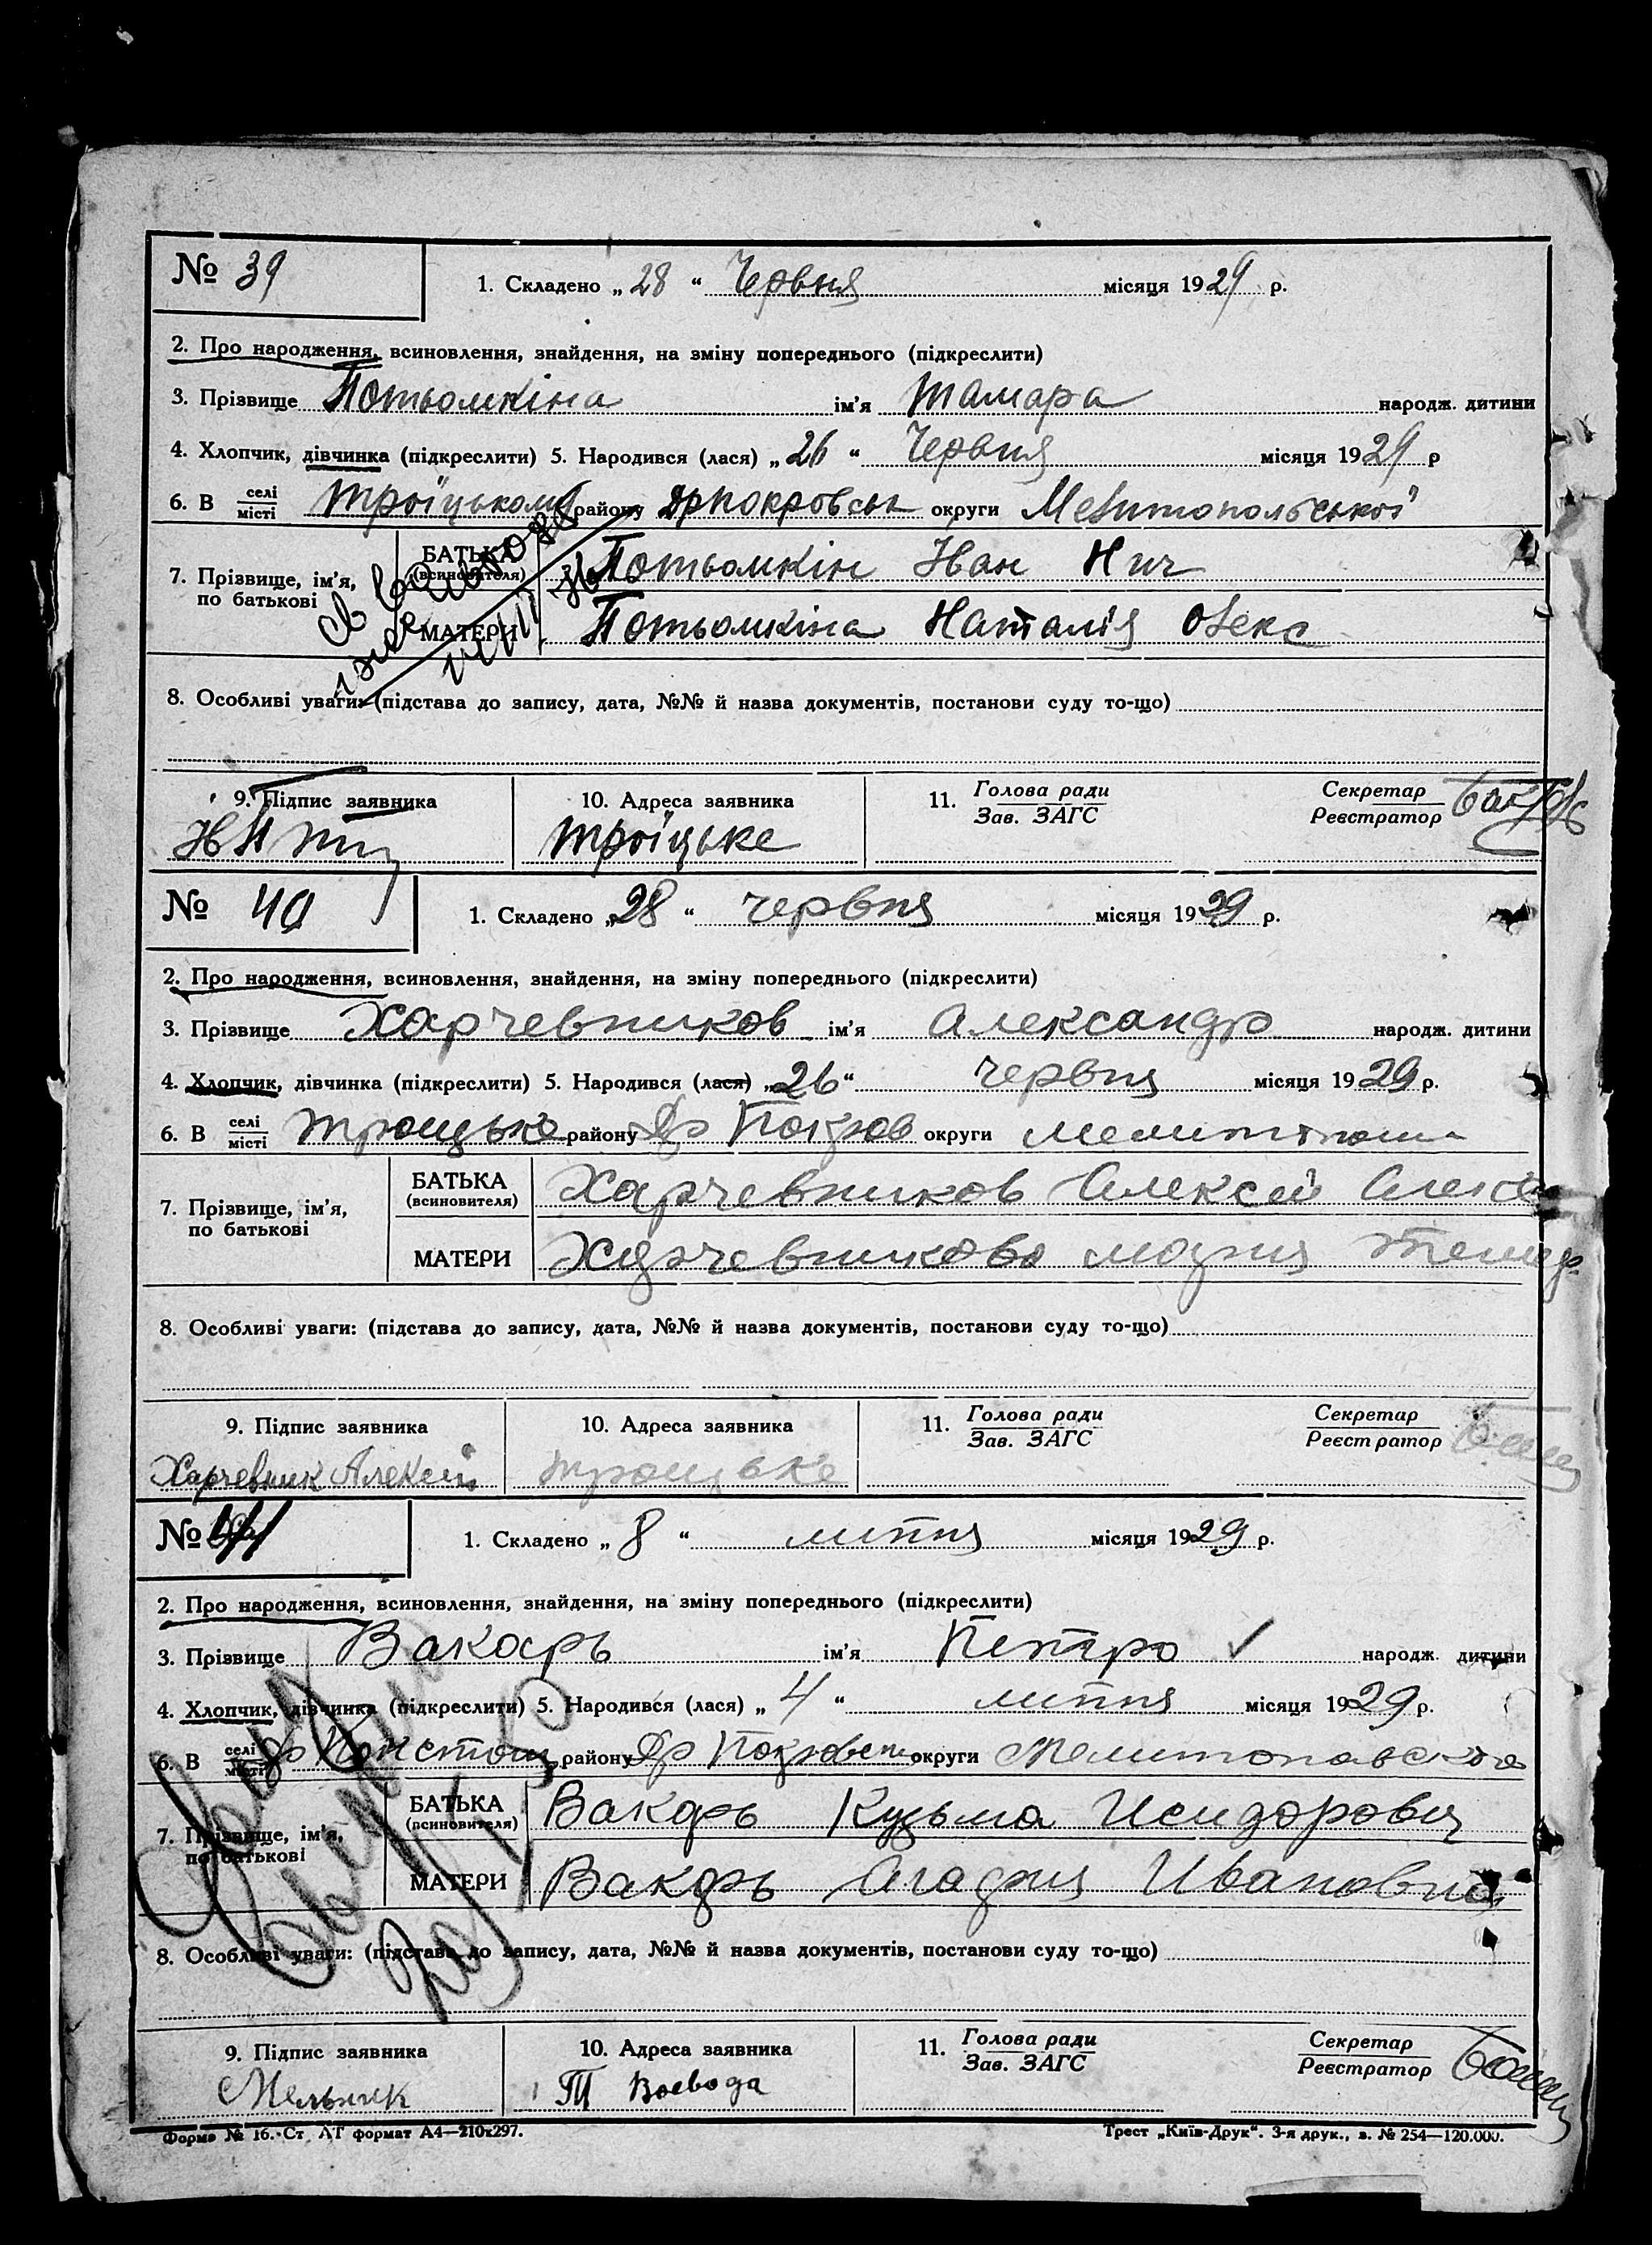 № 39
1. Складено „ 28 “ Червня місяця 1929 р.
2. Про народження, всиновлення, знайдення, на зміну попереднього (підкреслити)
3. Прізвище Потьомкіна ім'я Тамара народж. дитини
4. Хлопчик, дівчинка (підкреслити) 5. Народився (лася) „ 26 “ Червня місяця 1929 р
6. В селі місті Троїцькому району Дрпокровськ округи Мелитопольської
7. Прізвище, ім'я, по батькові
БАТЬКА (всиновителя) Потьомкін Іван
МАТЕРИ Потьомкіна Наталія Олекс
8. Особливі уваги: (підстава до запису, дата, №№ й назва документів, постанови суду то-що)
9. Підпис заявника
10. Адреса заявника
11. Голова ради Зав. ЗАГС
Секретар Реєстратор
Троїцьке
№ 40
1. Складено „ 28 “ червня місяця 1929 р.
2. Про народження, всиновлення, знайдення, на зміну попереднього (підкреслити)
3. Прізвище Харчевников ім'я Александр народж. дитини
4. Хлопчик, дівчинка (підкреслити) 5. Народився (лася) „ 26 “ червня місяця 1929 р.
6. В селі місті Троицьке району Др Покров округи
7. Прізвище, ім'я, по батькові
БАТЬКА (всиновителя) Харчевников Алексей
МАТЕРИ Харчевникова Мария
8. Особливі уваги: (підстава до запису, дата, №№ й назва документів, постанови суду то-що)
9. Підпис заявника
10. Адреса заявника
11. Голова ради Зав. ЗАГС
Секретар Реєстратор
Харчевник Алексей
Троицьке
№ 41
1. Складено „ 8 “ липня місяця 1929 р.
2. Про народження, всиновлення, знайдення, на зміну попереднього (підкреслити)
3. Прізвище Вакарь ім'я Петро ✓ народж. дитини
4. Хлопчик, дівчинка (підкреслити) 5. Народився (лася) „ 4 “ липня місяця 1929 р.
6. В селі місті району Др округи
7. Прізвище, ім'я, по батькові
БАТЬКА (всиновителя) Вакарь Кузьма Исидорович
МАТЕРИ Вакарь Ивановна
8. Особливі уваги: (підстава до запису, дата, №№ й назва документів, постанови суду то-що)
9. Підпис заявника
10. Адреса заявника
11. Голова ради Зав. ЗАГС
Секретар Реєстратор
Мельник
Воевода
Форма № 16. Ст ЛТ формат А4—210x297.
Трест „Київ-Друк“. 3-я друк., з. № 254—120.000.